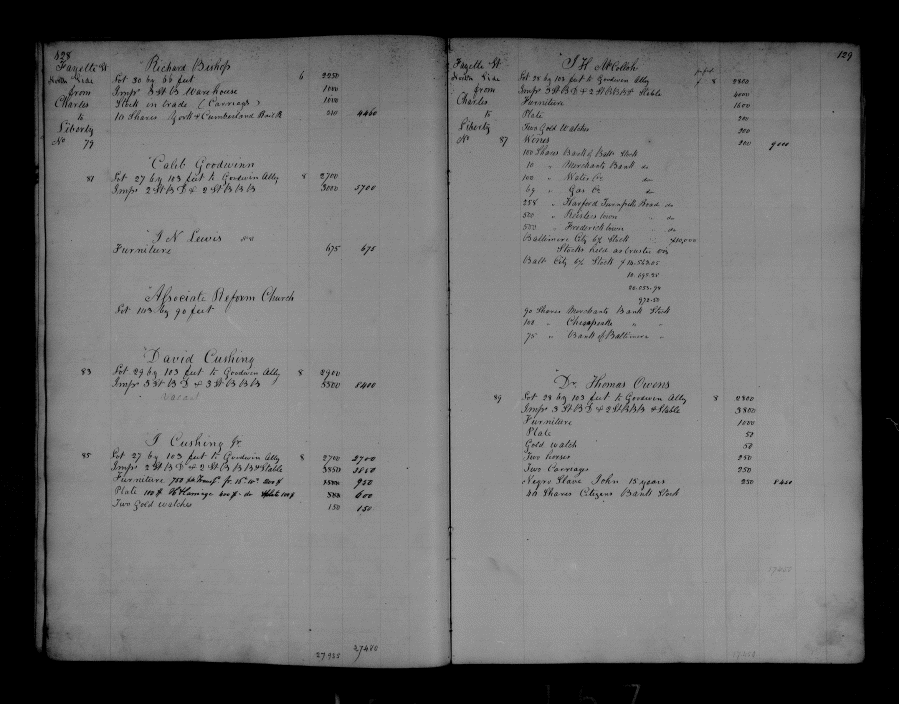 128
Fayette St
North Side
from
Charles
to
Liberty
No 79
Richard Bishop
Lot 30 by 66 feet 6 2250
Impr 3 St B Warehouse 1000
Stock in trade (Carriages) 1000
10 Shares York & Cumberland 210 4460
Caleb Goodwinn
81 Lot 27 by 103 feet to Goodwin Ally 8 2700
Imps 2 St B D & 2 St B B B 3000 5700
J N Lewis
Furniture 675 675
Associate Reform Church
Lot 103 by 90 feet
David Cushing
83 Lot 29 by 103 feet to Goodwin Ally 8 2900
Impr 3 St B D & 3 St B B B 5500 8400
Vacant
J Cushing Jr
85 Lot 27 by 103 feet to Goodwin Ally 8 2700 2700
Imps 2 St B D & 2 St B B B & Stable 3850
Furniture 950
Plate 600
Two Gold watches 150 150
27485 27480
129
Fayette St
North Side
from
Charles
to
Liberty
No 87
J H McCollah
Lot 28 by 103 feet to Goodwin Ally 8 2800
Imps 3 St B D & 2 St B B B & Stable 4000
Furniture 1600
Plate 200
Two Gold Watches 200
Wines 200 9000
100 Shares Bank of Balt Stock
10 " Merchants Bank do
100 " Water Co do
69 " Gas Co do
258 " Harford Turnpike Road do
500 " Reisters town " do
500 " Fredericktown " do
Baltimore City 6% Stock $10,000
Stocks held as trustee
Balt City 6% Stock
20.053.94
972.50
90 Shares Merchants Bank Stock
100 " Chesapeake " "
75 " Bank of Baltimore "
Dr Thomas Owens
89 Lot 28 by 103 feet to Goodwin Ally 8 2800
Imps 3 St B D & 2 St B B B & Stable 3800
Furniture 1000
Plate 50
Gold watch 50
Two horses 250
Two Carriages 250
Negro Slave John 15 years 250
Shares Citizens Bank Stock